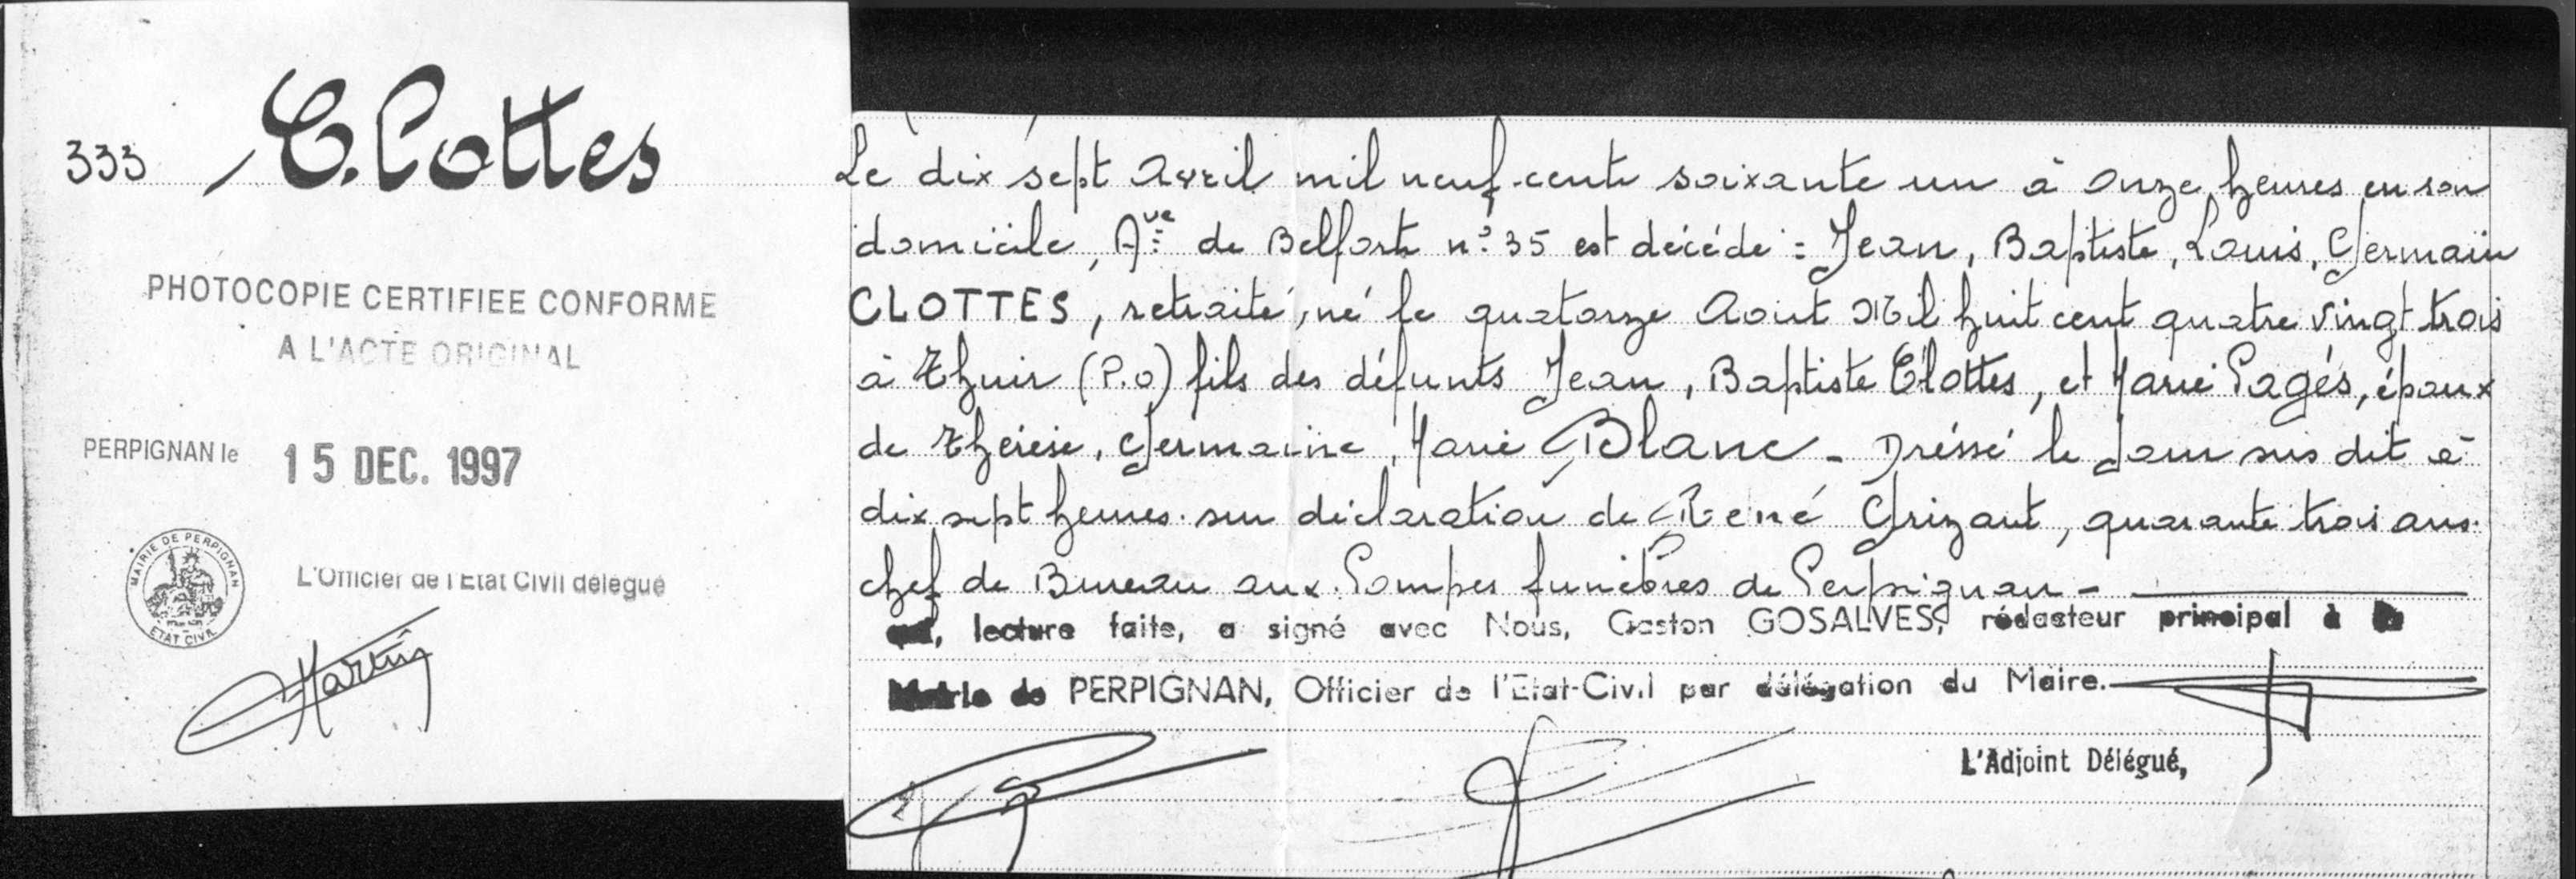 333 Clottes
PHOTOCOPIE CERTIFIEE CONFORME
A L'ACTE ORIGINAL
PERPIGNAN le 15 DEC. 1997
MAIRIE DE PERPIGNAN
ETAT CIVIL
L'Officier de l'Etat Civil délégué
Martin
Le dix sept Avril mil neuf cent soixante un à onze heures en son
domicile, Ave de Belfort n° 35 est décédé : Jean, Baptiste, Louis, Germain
CLOTTES, retraité, né le quatorze Aout Mil huit cent quatre vingt trois
à Thuir (P.O) fils des défunts Jean, Baptiste Clottes, et Marie Pagés, époux
de Thérèse, Germaine, Marie Blanc - Dressé le jour sus dit à
dix sept heures sur déclaration de René Grizaut, quarante trois ans
chef de Bureau aux Pompes funèbres de Perpignan -
qui, lecture faite, a signé avec Nous, Gaston GOSALVES, rédacteur principal à la
Mairie de PERPIGNAN, Officier de l'Etat-Civil par délégation du Maire.
L'Adjoint Délégué,